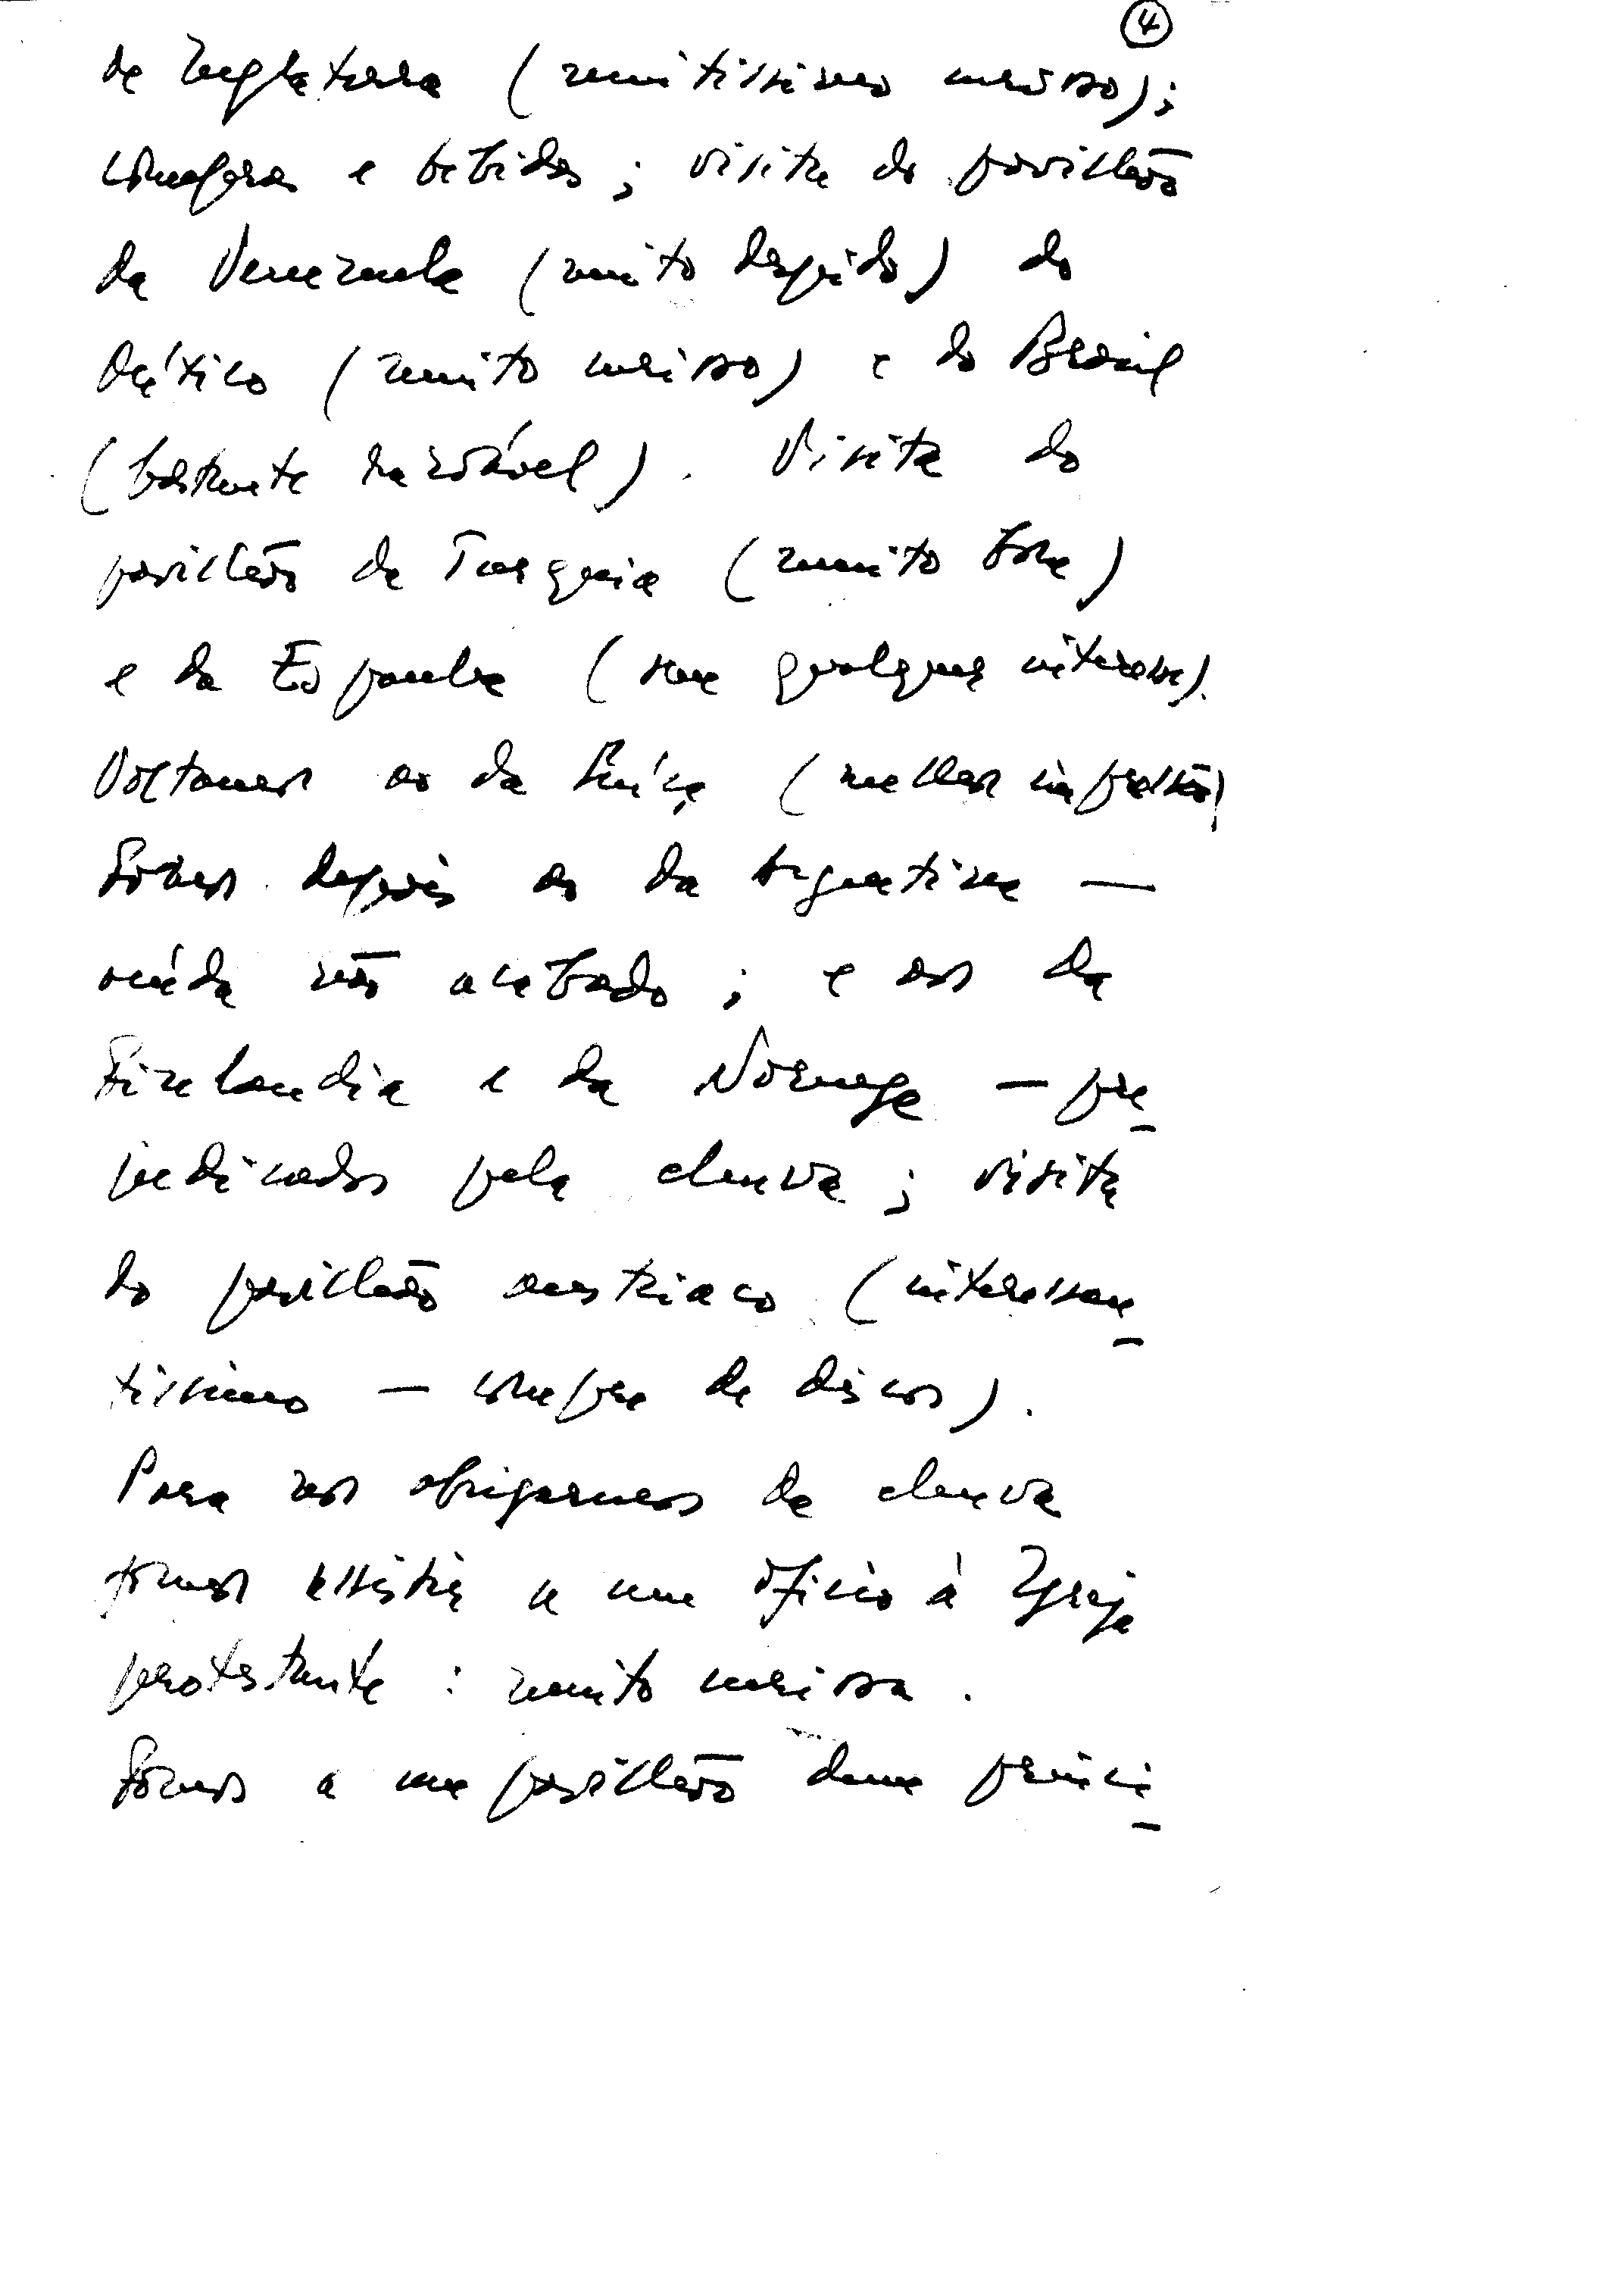 ④
de Inglaterra (muitissimo curioso);
compras e bebidas; visita do pavilhão
da Venezuela (muito despido) do
(muito curioso) e do Brasil
(bastante razoável). Visita do
pavilhão da Turquia (muito bom)
e da Espanha (sem qualquer interesse).
Voltamos ao da Suíça (melhor impressão)
Fomos depois ao da Argentina —
ainda não acabado; e aos da
Finlandia e da Noruega — pre-
judicados pela chuva; visita
do pavilhão austriaco (interessan-
tissimo — compra de discos).
Para nos abrigarmos da chuva
fomos assistir a um ofício à Igreja
protestante: muito curiosa.
Fomos a um pavilhão duma